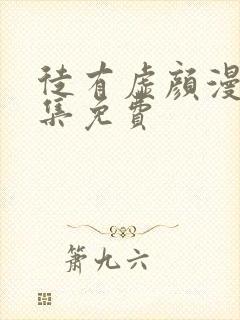 徒有虚颜漫
集免費
箫九六